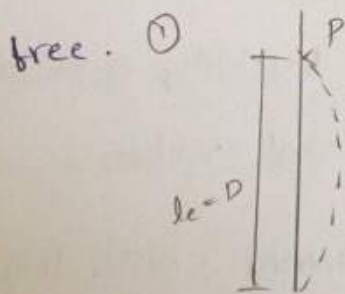 free. ①
P
le = D